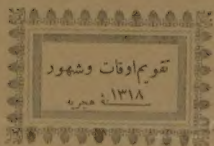 تقويم اوقات وشهور
١٣١٨ سنهٔ هجريه